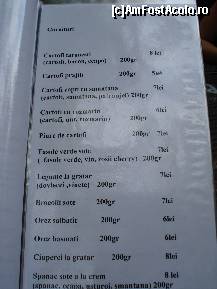 [c]AmFostAcolo.ro
Garnituri
Cartofi taranesti 8 lei
(cartofi, bacon, ceapa) 200gr
Cartofi prajiti 200gr 5lei
Cartofi copti cu smantana 7lei
(cartofi, smantana, patrunjel) 200gr
Cartofi cu rozmarin 6lei
(cartofi, unt, rozmarin) 200gr
Piure de cartofi 200gr 7lei
Fasole verde sote 7lei
( fasole verde, vin, rosii cherry) 200gr
Legume la gratar 7lei
(dovlecei, vinete) 200gr
Broccoli sote 200gr 7lei
Orez salbatic 200gr 6lei
Orez basmati 200gr 6lei
Ciuperci la gratar 200gr 8lei
Spanac sote a la creme 8 lei
(spanac, ceapa, usturoi, smantana) 200gr